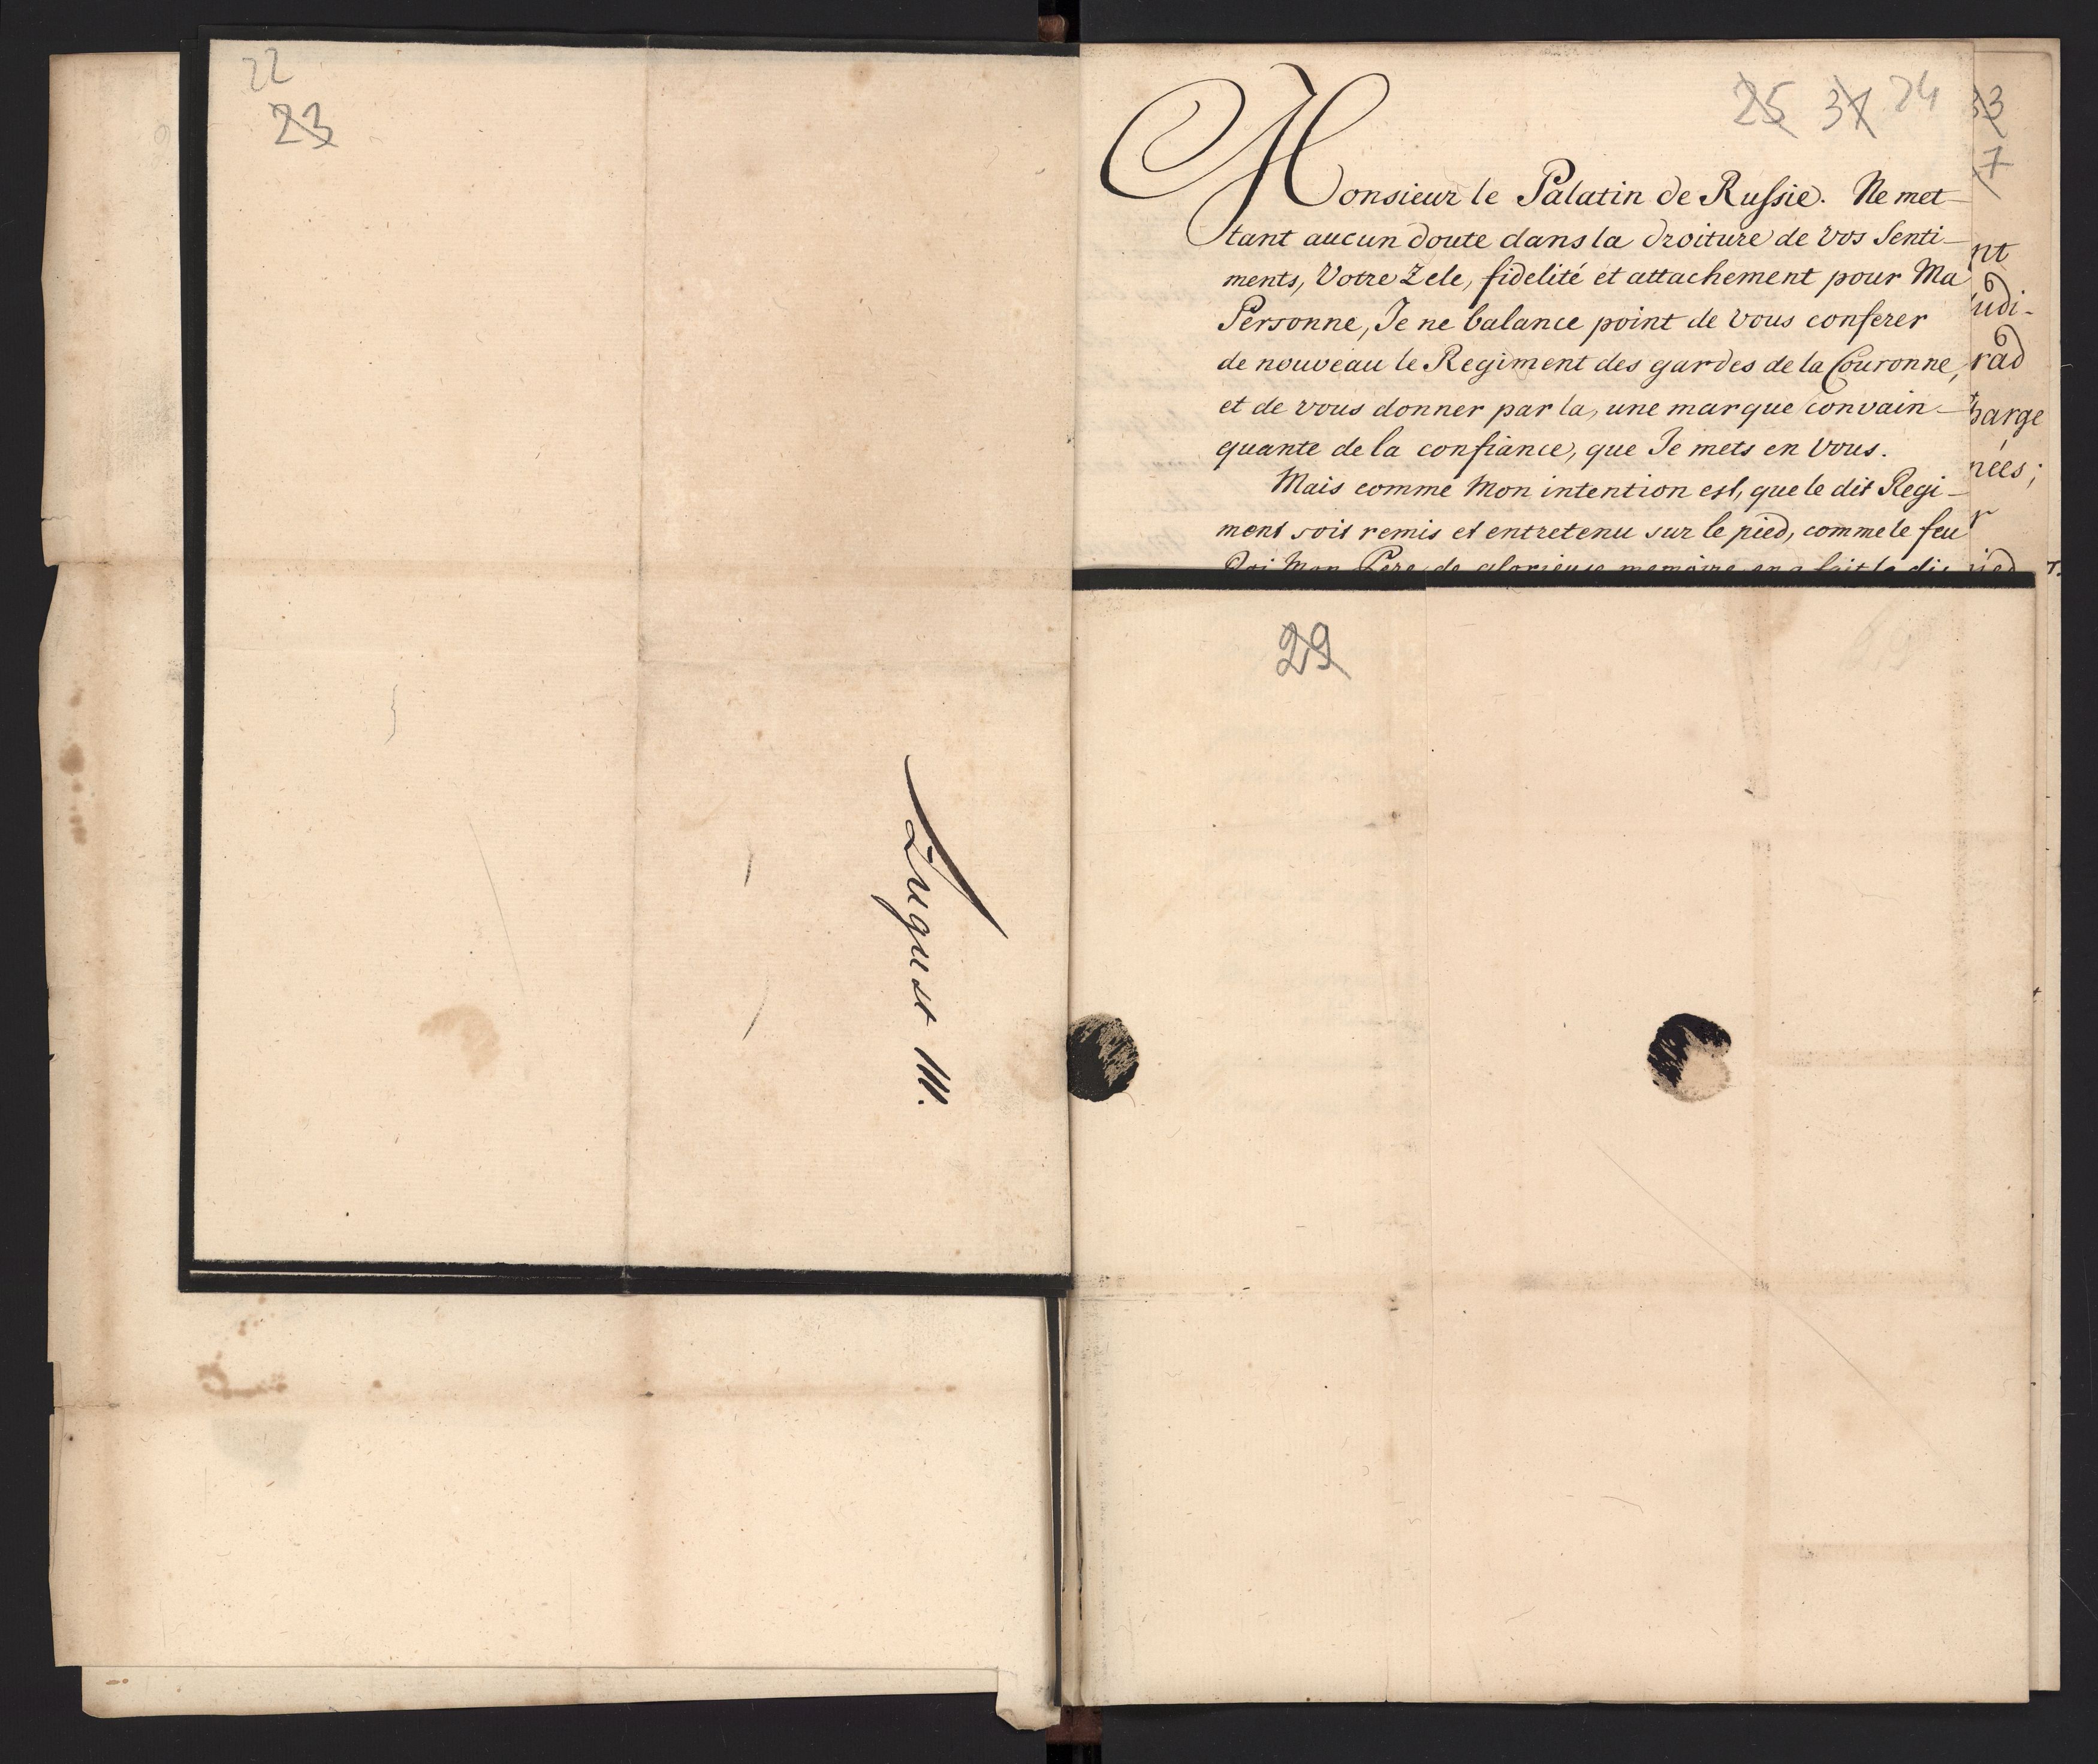 22
23
August III.
25 37 24
Monsieur le Palatin de Russie. Ne met-
tant aucun doute dans la droiture de vos Senti-
ments, Votre Zele, fidelité et attachement pour Ma
Personne, Je ne balance point de vous conferer
de nouveau le Regiment des gardes de la Couronne,
et de vous donner par la, une marque convain-
quante de la confiance, que Je mets en Vous.
Mais comme Mon intention est, que le dit Regi-
ment soit remis et entretenu sur le pied, comme le feu
Roi Mon Pere, de glorieuse memoire en a fait la dis
33
7
nt
udi-
rad
harge
nées;
r
29